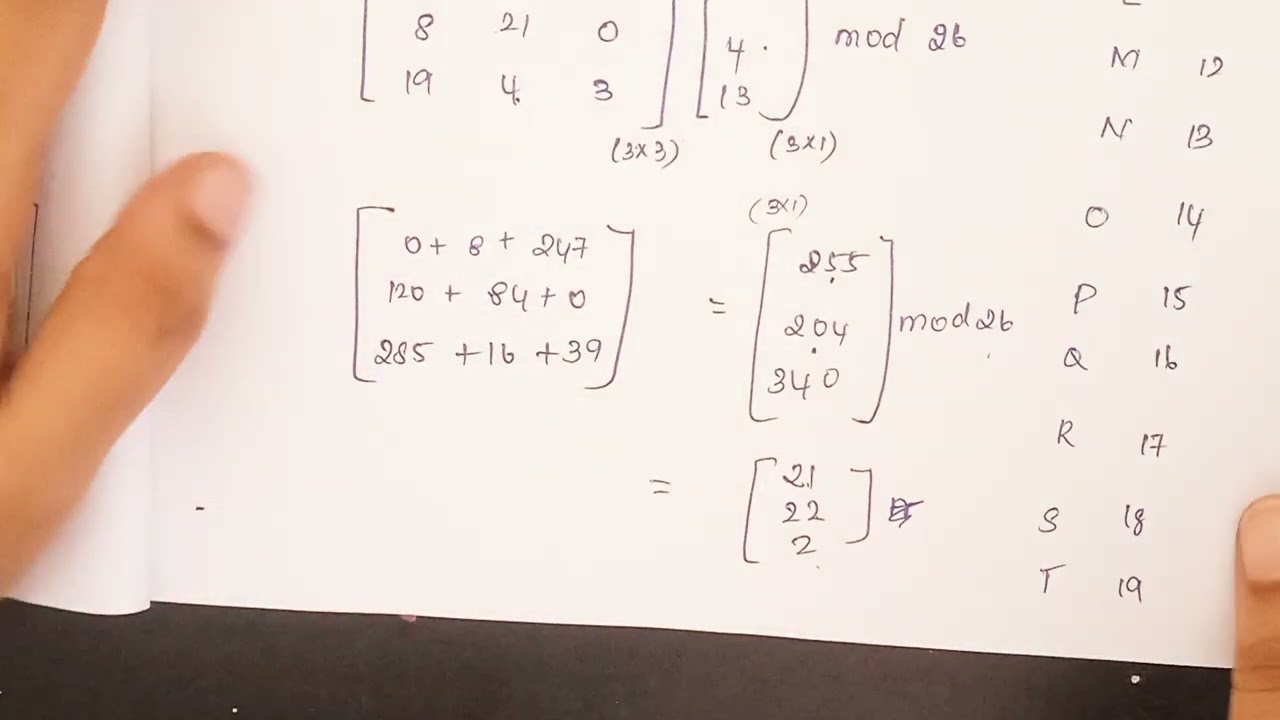 8 21 0
19 4 3
4
13
mod 26
(3×3)
(3×1)
0 + 8 + 247
120 + 84 + 0
285 + 16 + 39
=
(3×1)
255
204
340
mod 26
=
21
22
2
M 12
N 13
O 14
P 15
Q 16
R 17
S 18
T 19